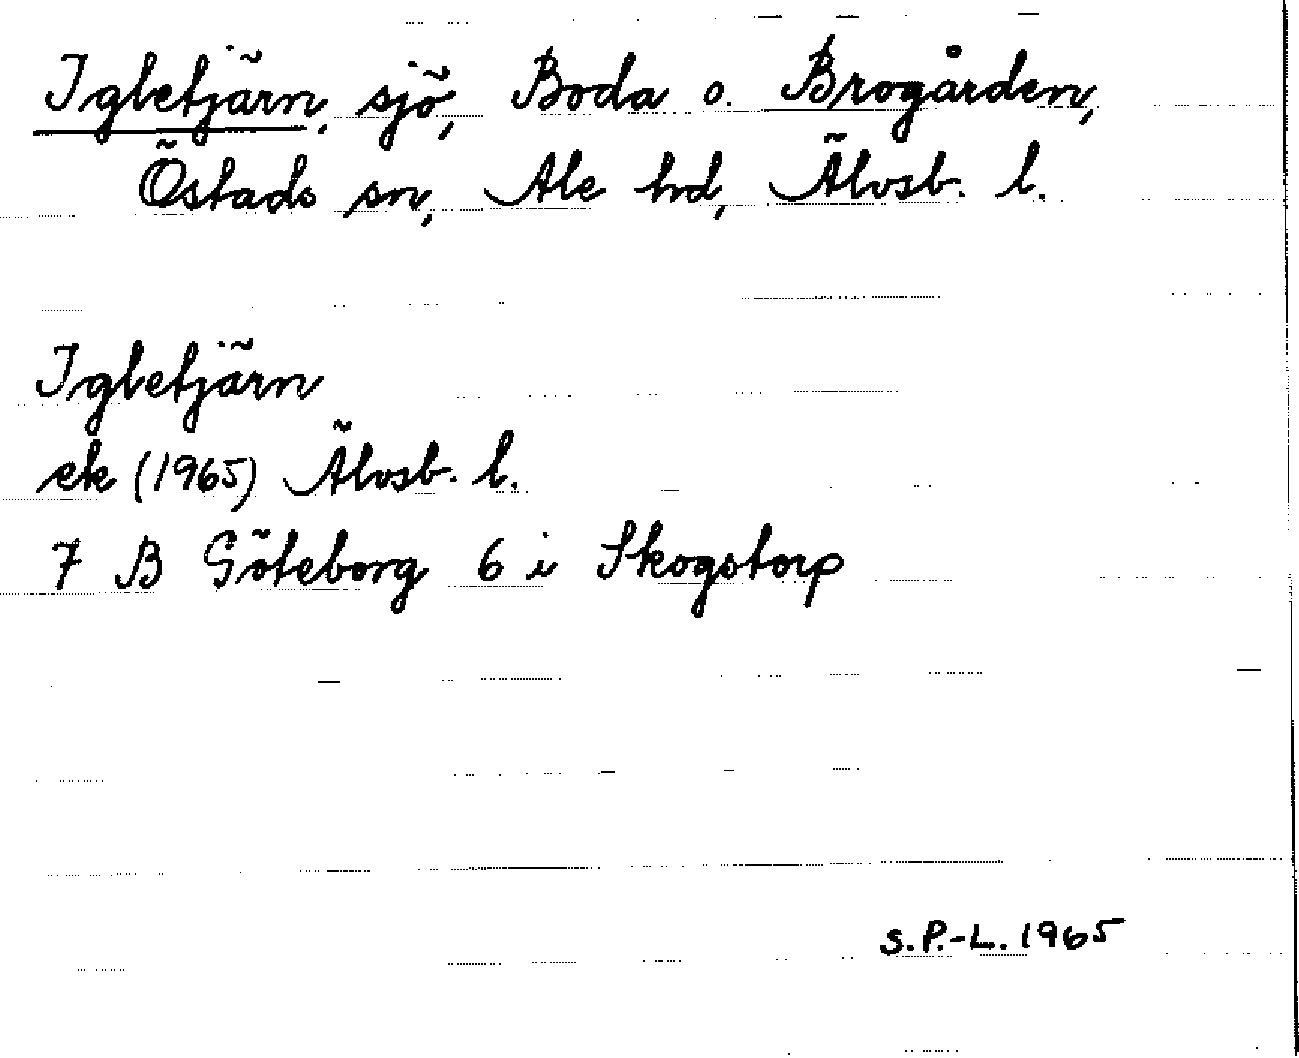 Igletjärn, sjö, Boda o. Brogården,
Östads sn, Ale hd, Älvsb. l.
Igletjärn
ek (1965) Älvsb. l.
7 B Göteborg 6 i Skogstorp
S.P.-L. 1965